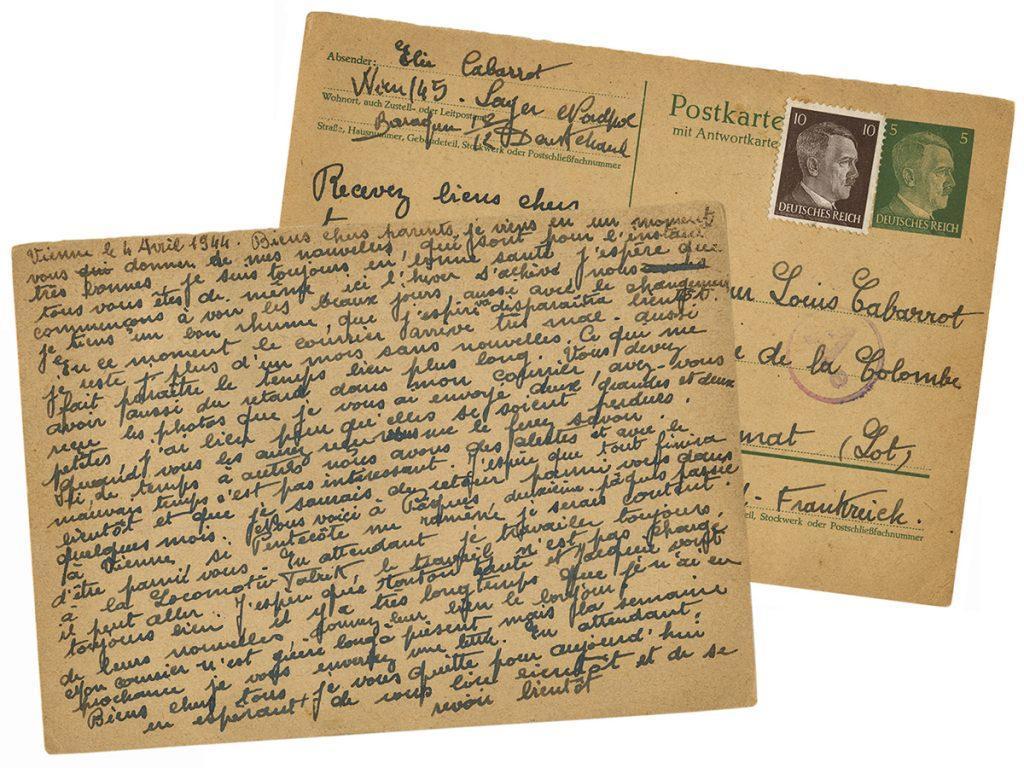 Absender: Elie Cabarrot
Wien/45. Lager Nordpol
Wohnort, auch Zustell- oder Leitpostamt
Baraquen 12
Straße, Hausnummer, Gebäudeteil, Stockwerk oder Postschließfachnummer
Recevez biens chers
Postkarte
mit Antwortkarte
10 10
DEUTSCHES REICH
5 5
DEUTSCHES REICH
Louis Cabarrot
de la Colombe
mat (Lot)
Frankreich.
eil, Stockwerk oder Postschließfachnummer
Vienne le 4 Avril 1944. Biens chers parents, je viens en un moment
vous donner de mes nouvelles, qui sont pour l'instant
très bonnes. je suis toujours en bonne santé j'espère que
tous vous êtes de même. ici l'hiver s'achève nous
commençons à voir les beaux jours, aussi avec le changement
je tiens un bon rhume, que j'espère va disparaître bientôt.
En ce moment le courrier arrive très mal. aussi
je reste plus d'un mois sans nouvelles. Ce qui me
fait paraître le temps bien plus long. Vous devez
avoir aussi du retard dans mon courrier, avez-vous
reçu les photos que je vous ai envoyé deux grandes et deux
petites j'ai bien peur qu'elles se soient perdues.
quand vous les aurez reçu me le ferez savoir.
Ici de temps à autres nous avons des alertes et avec le
mauvais temps c'est pas intéressant. J'espère que tout finira
bientôt et que je serais de retour parmi vous dans
quelques mois. Nous voici à Pâques deuxième pâques passé
à Vienne si Pentecôte me ramène je serais content
d'être parmi vous. En attendant je travailler toujours
à la Locomotiv Fabrik, le travail n'est pas changé
il peut aller. J'espère que tonton et Jacquie vont
toujours bien. il y a très longtemps que je n'ai eu
de leurs nouvelles donnez-leur bien le bonjour
Mon courrier n'est guère long à présent mais la semaine
prochaine je vous enverrez une lettre. En attendant
Biens chers tous je vous quitte pour aujourd'hui
en espérant de vous lire bientôt et de se
revoir bientôt